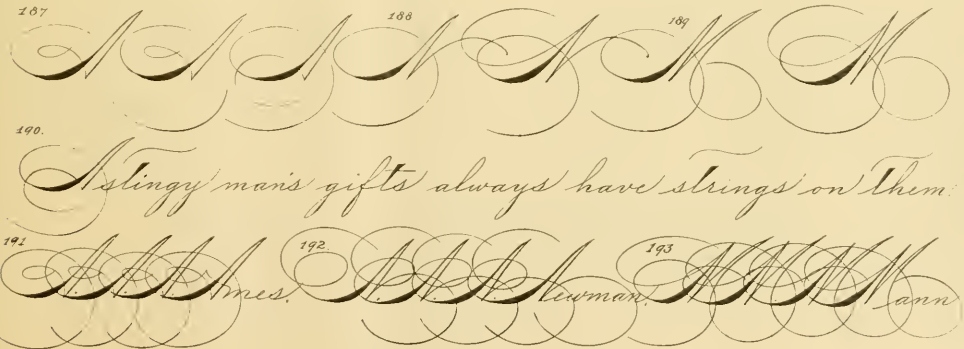 187 A A A 188 N N 189 M M
190. A stingy man's gifts always have strings on them.
191 A. A. A. Ames. 192. N. N. N. Newman. 193 M. M. M. Mann